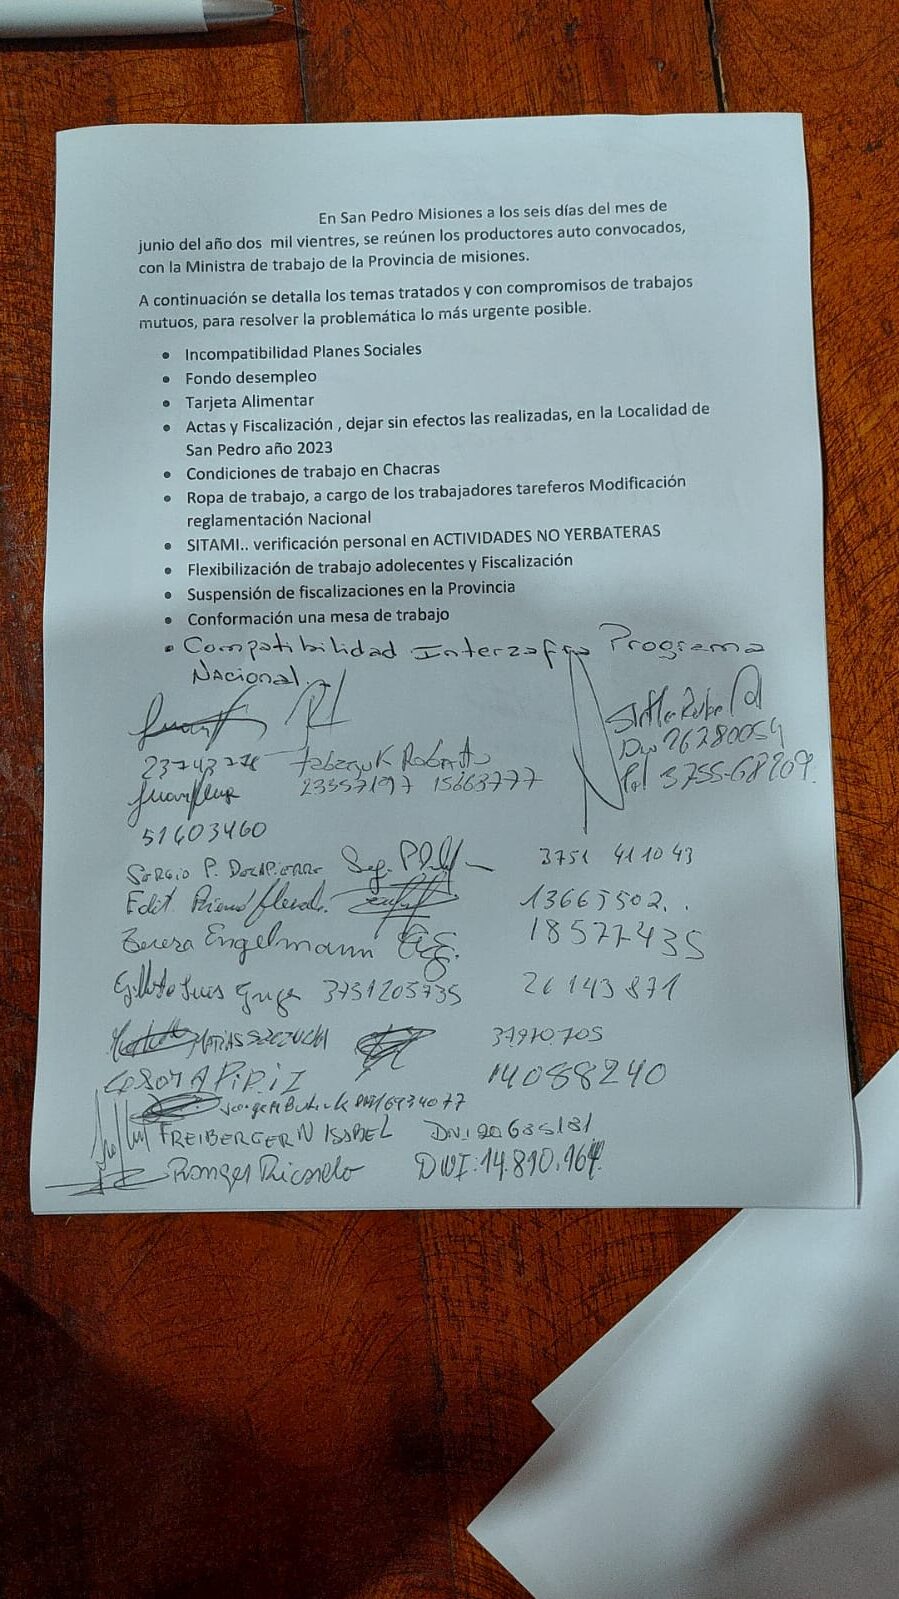 En San Pedro Misiones a los seis días del mes de
junio del año dos mil vientres, se reúnen los productores auto convocados,
con la Ministra de trabajo de la Provincia de misiones.
A continuación se detalla los temas tratados y con compromisos de trabajos
mutuos, para resolver la problemática lo más urgente posible.
• Incompatibilidad Planes Sociales
• Fondo desempleo
• Tarjeta Alimentar
• Actas y Fiscalización , dejar sin efectos las realizadas, en la Localidad de
San Pedro año 2023
• Condiciones de trabajo en Chacras
• Ropa de trabajo, a cargo de los trabajadores tareferos Modificación
reglamentación Nacional
• SITAMI.. verificación personal en ACTIVIDADES NO YERBATERAS
• Flexibilización de trabajo adolecentes y Fiscalización
• Suspensión de fiscalizaciones en la Provincia
• Conformación una mesa de trabajo
• Compatibilidad Interzafra Programa
Nacional.
26280054
3755-68209
Roberto
23357197 15663777
51603460
Sergio P. 3751 411043
Edit 13665502..
Engelmann 18577435
Luis 3751205735 26143871
MATIAS 37970705
14088240
16934077
FREIBERGER N ISABEL DNI 20635131
Ricardo DNI: 14.810.164